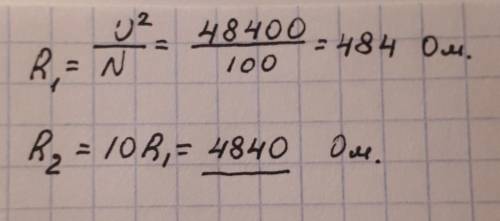 R₁ = U²/N = 48400/100 = 484 Ом.
R₂ = 10R₁ = 4840 Ом.